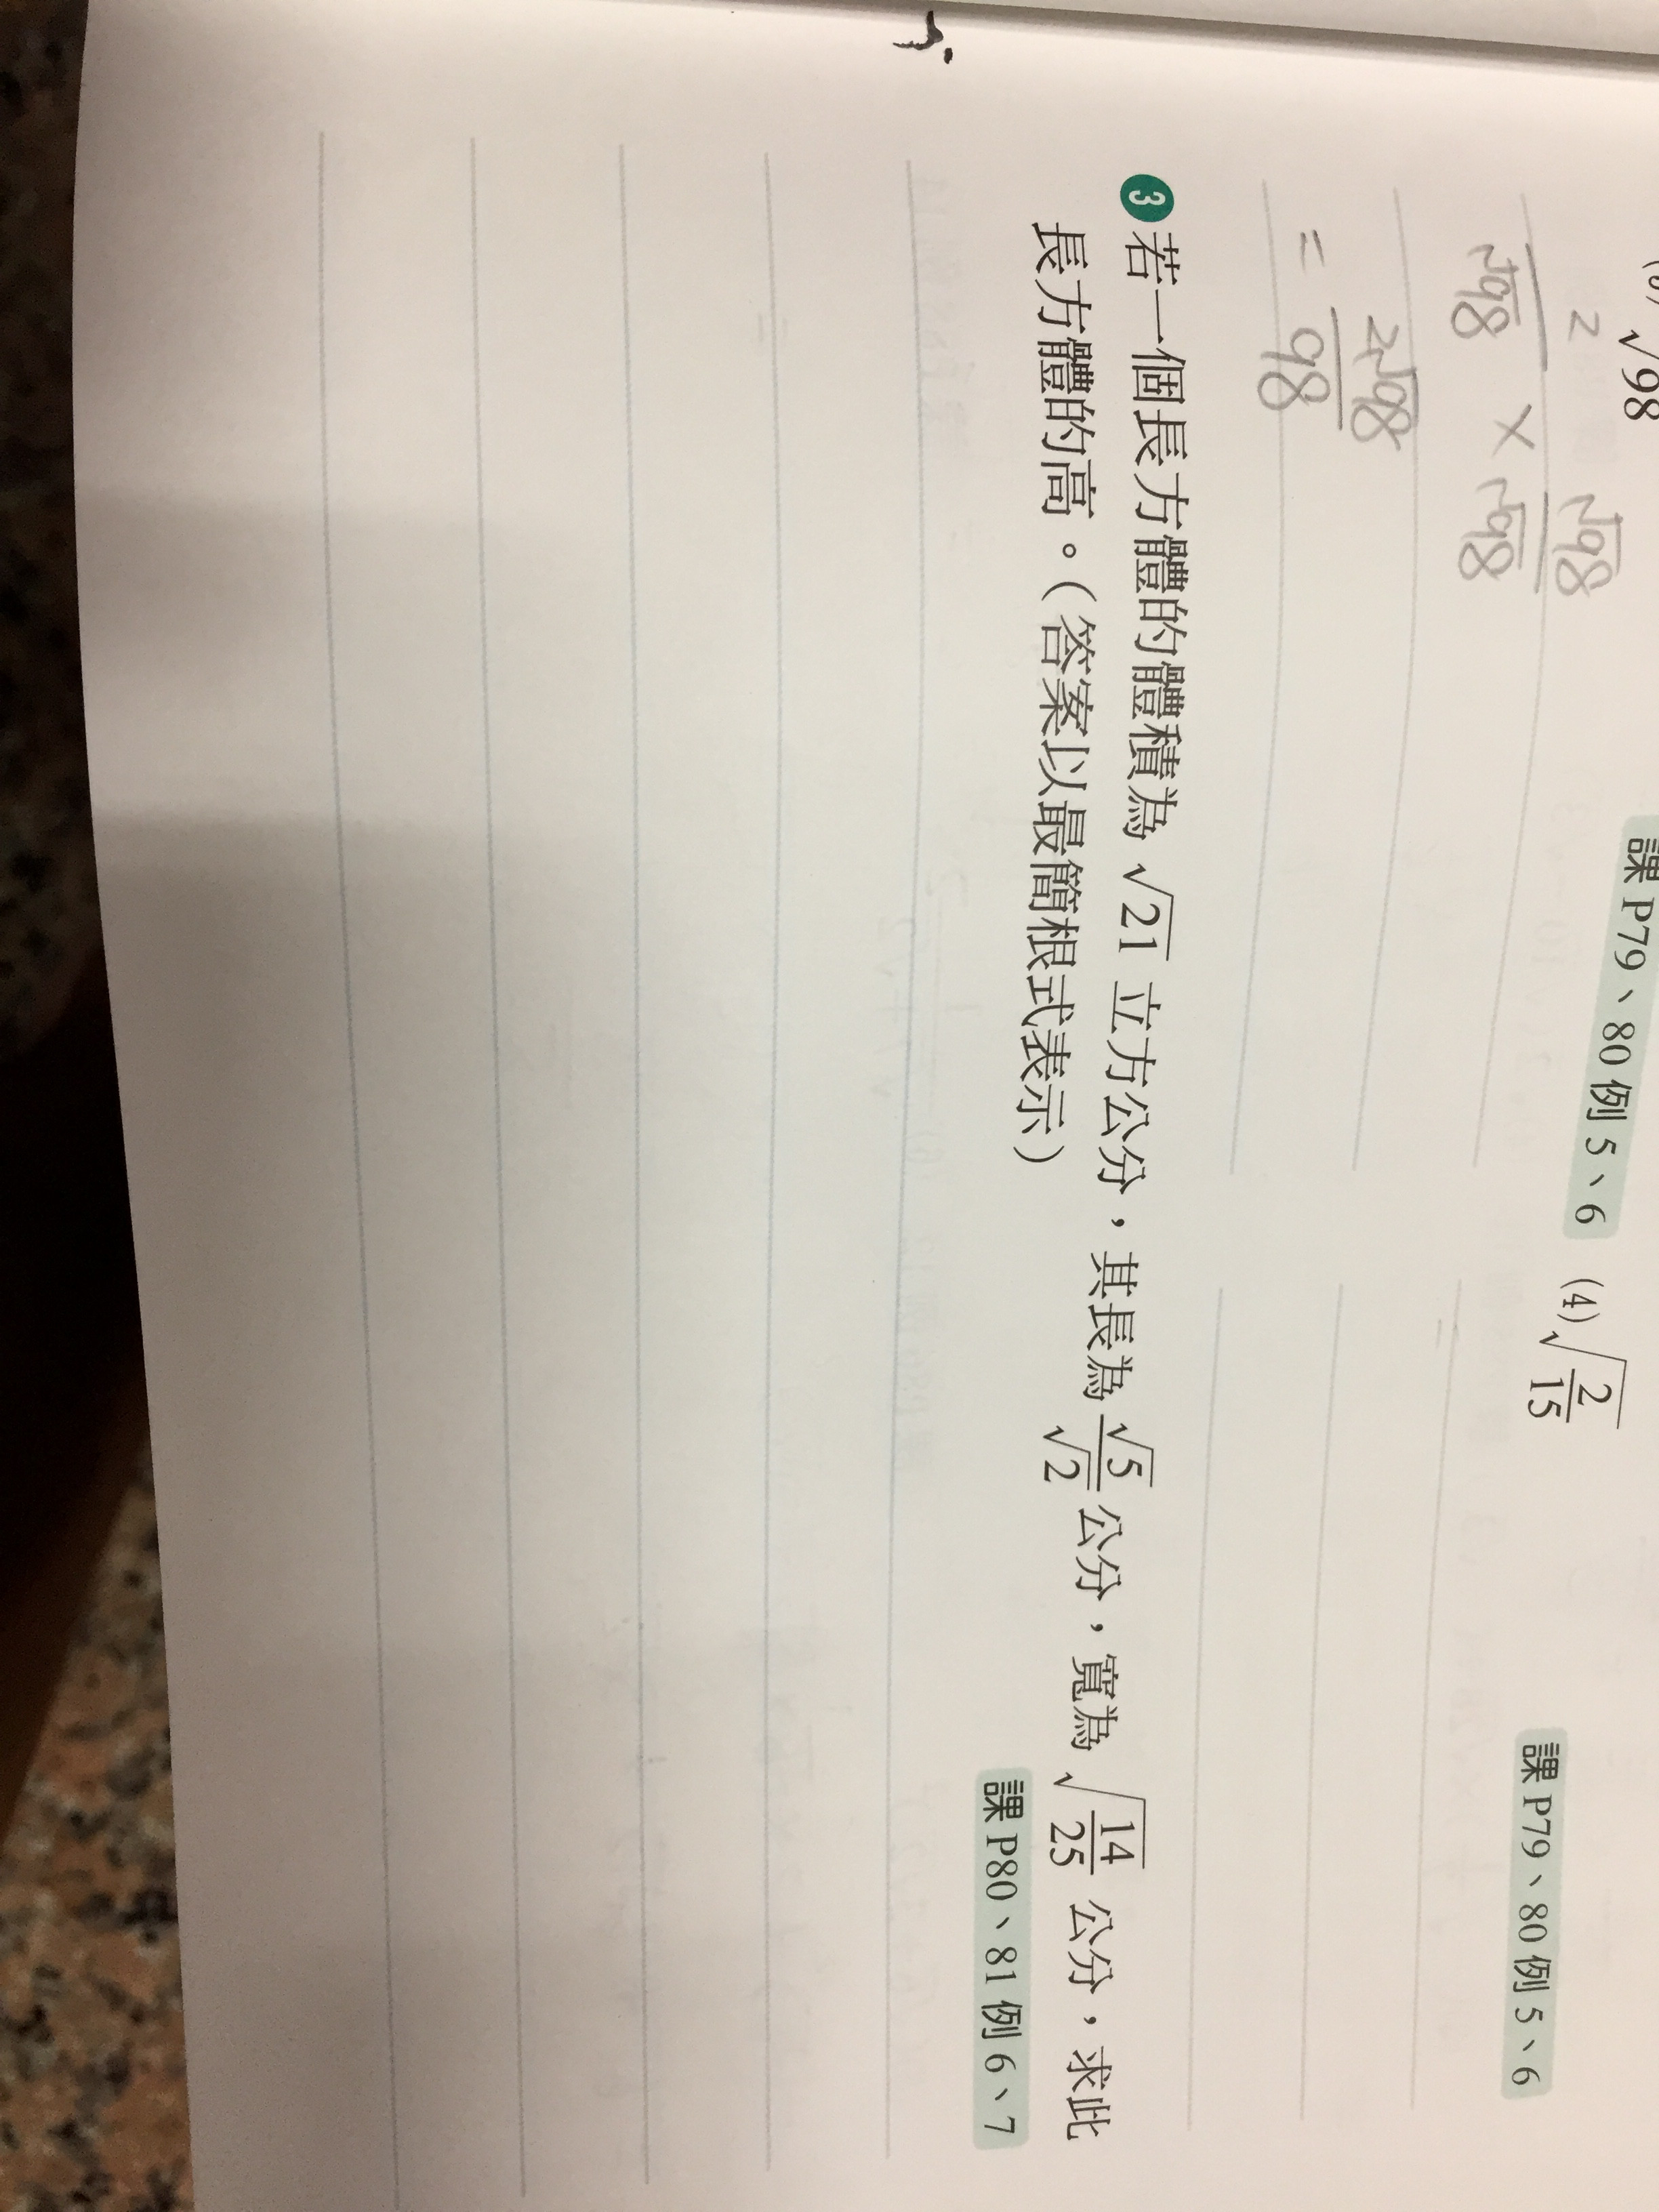 √98
課 P79、80 例 5、6
(4) √(2/15)
課 P79、80 例 5、6
2/√98 × √98/√98
= 2√98/98
3 若一個長方體的體積為 √21 立方公分，其長為 √5/√2 公分，寬為 √(14/25) 公分，求此
長方體的高。（答案以最簡根式表示）
課 P80、81 例 6、7